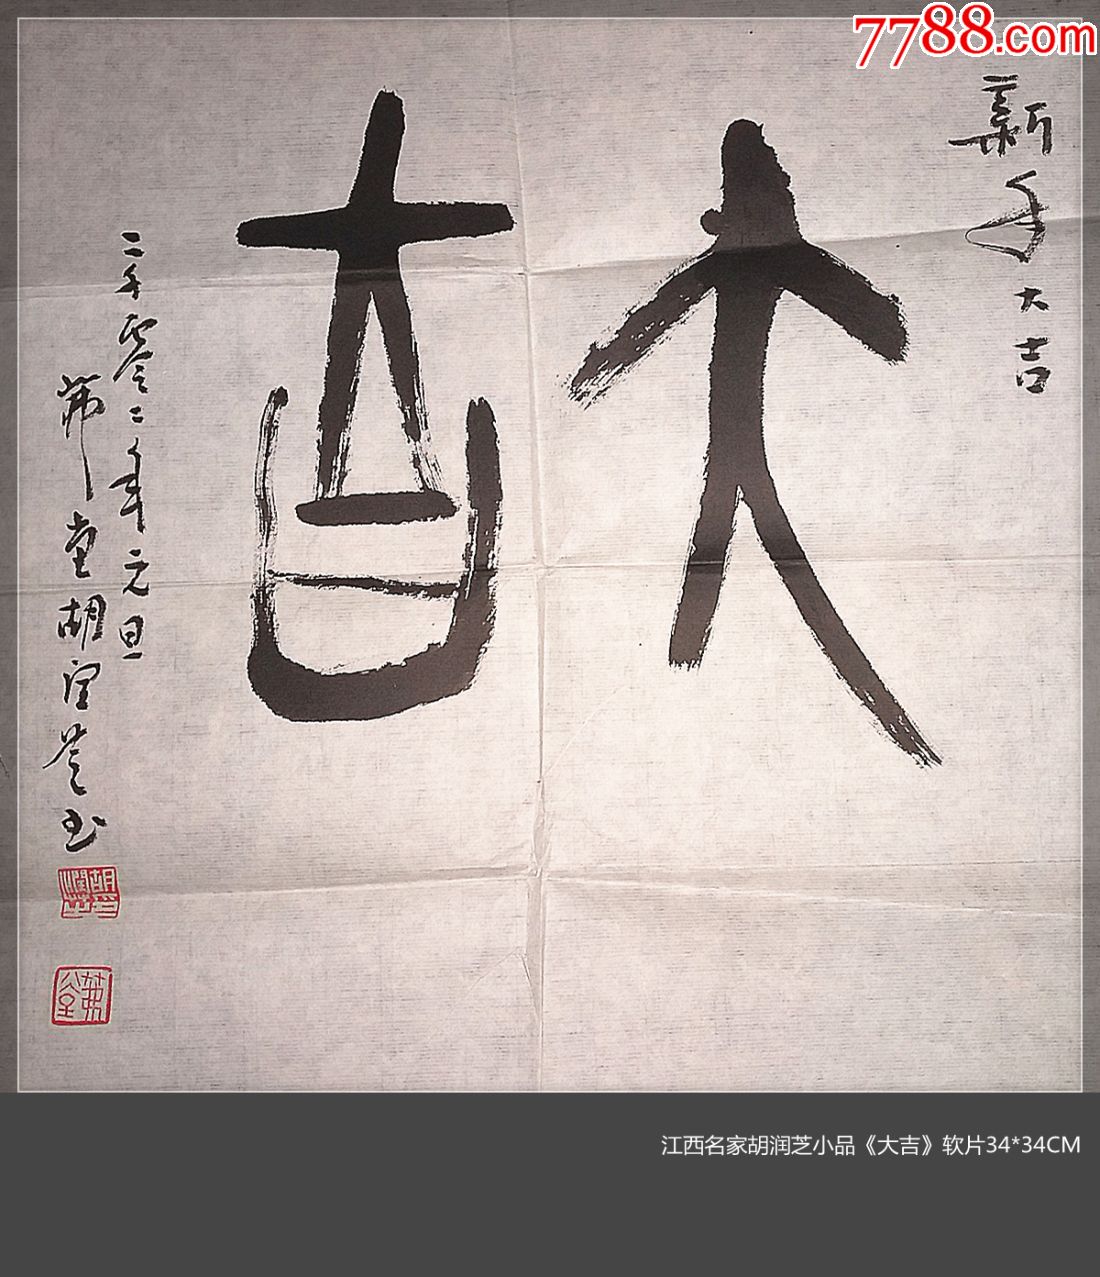 7788.com
新年大吉
大吉
二千零二年元旦
茀堂胡润芝书
江西名家胡润芝小品《大吉》软片34*34CM